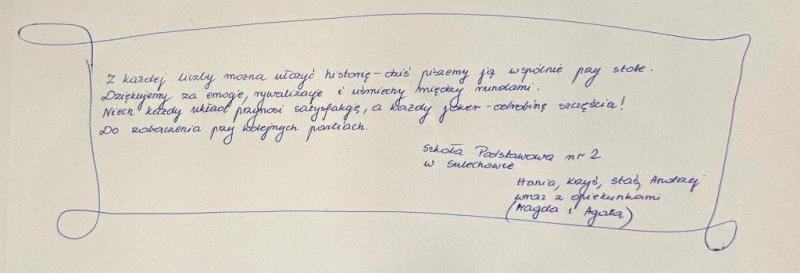 Z każdej liczby można ułożyć historię – dziś piszemy ją wspólnie przy stole.
Dziękujemy za emocje, rywalizację i uśmiechy między rundami.
Niech każdy układ przynosi satysfakcję, a każdy joker – odrobinę szczęścia!
Do zobaczenia przy kolejnych partiach.
Szkoła Podstawowa nr 2
w Sulechowie
Hania, Krzyś, Staś, Andrzej
wraz z opiekunkami
(Magda i Agata)